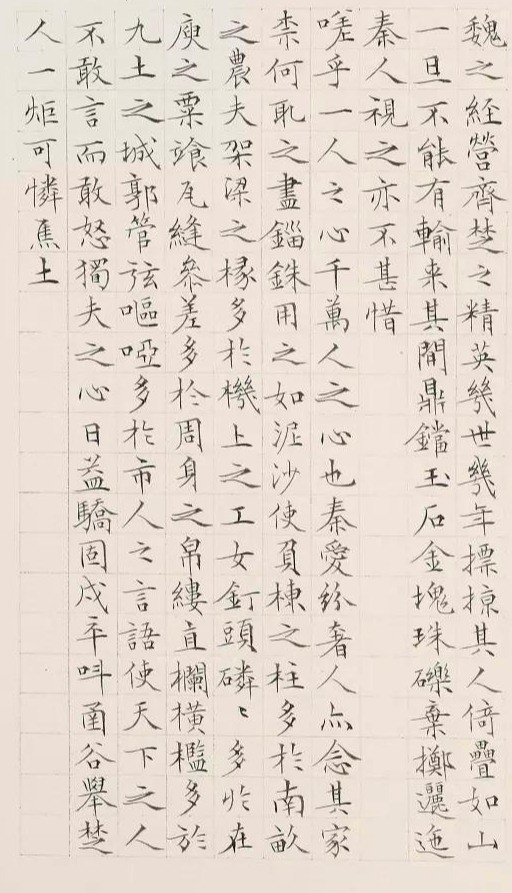 魏之經營齊楚之精英幾世幾年摽掠其人倚疊如山
一旦不能有輸来其間鼎鐺玉石金塊珠礫棄擲邐迤
秦人視之亦不甚惜
嗟乎一人之心千萬人之心也秦愛紛奢人亦念其家
柰何取之盡錙銖用之如泥沙使負棟之柱多於南畝
之農夫架梁之椽多於機上之工女釘頭磷〻多於在
庾之粟飡瓦縫參差多於周身之帛縷直欄橫檻多於
九土之城郭管弦嘔啞多於市人之言語使天下之人
不敢言而敢怒獨夫之心日益驕固戍卒叫函谷舉楚
人一炬可憐焦土